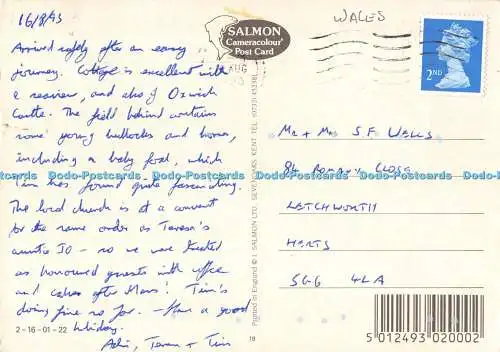 16/8/93
Arrived safely after an easy
journey. Cottage is excellent with
a seaview, and also of Oxwich
Castle. The field behind contains
some young bullocks and horses,
including a baby foal, which
Tim has found quite fascinating.
The local church is at a convent
for the same order as Teresa's
auntie Jo - so we were treated
as honoured guests with coffee
and cakes after Mass! Tim's
doing fine so far. Have a good
holiday.
Teresa + Tim
2-16-01-22
SALMON
Cameracolour
Post Card
AUG
Printed in England © J. SALMON LTD., SEVENOAKS, KENT. TEL:
18
WALES
2ND
Mr + Mrs S F Walls
84 Romany Close
LETCHWORTH
HERTS
SG6 4LA
5 012493 020002
Dodo-Postcards Dodo-Postcards Dodo-Postcards Dodo-Postcards